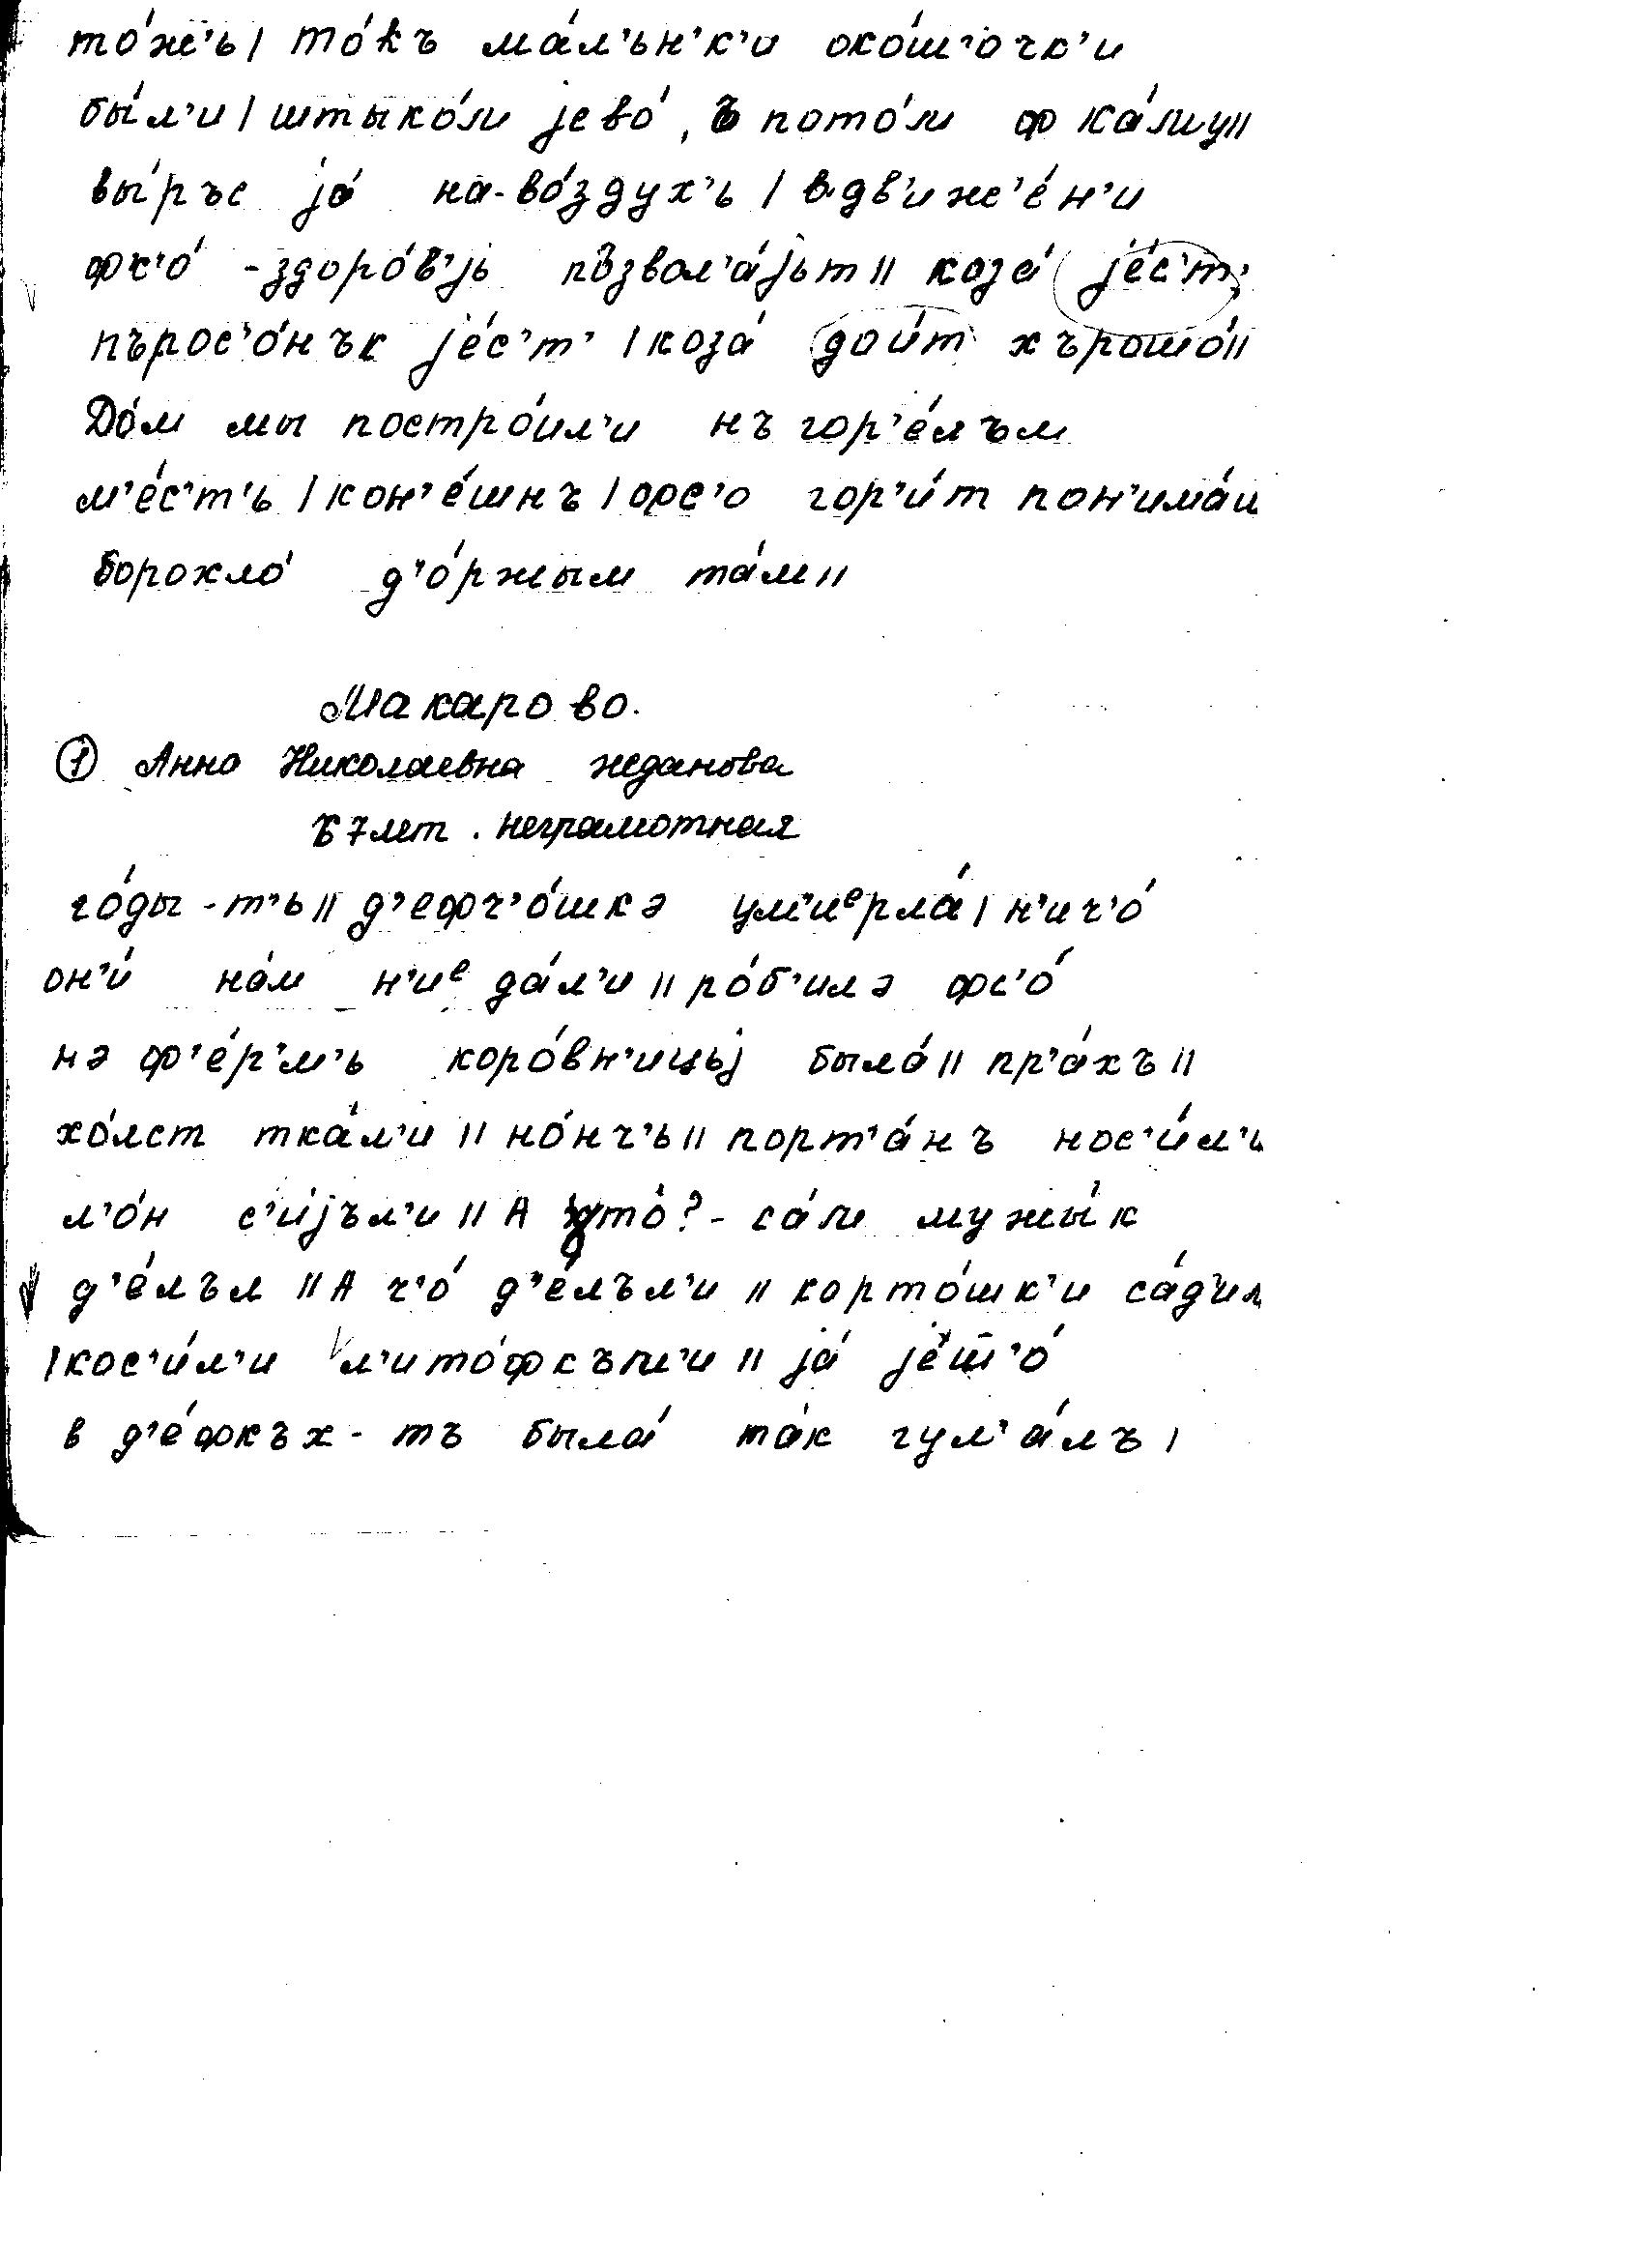 то́ж'ь| то́къ ма́л'ьн'к'и око́ш'очк'и
бы́л'и | штыко́м јево́, ъ пото́м ф ка́му||
вы́ръс ја́ на-во́здух'ь | в-дв'иж'е́н'и
фс'о́ -здоро́в'јь пъзвол'а́јьт || коза́ је́с'т'
пърос'о́нък је́с'т' | коза́ дои́т хърошо́||
До́м мы постро́ил'и нъ гор'е́лъм
м'е́с'т'ь | кон'е́шнъ | фс'о гор'и́т пон'има́и
борохло́ д'о́ржым та́м ||
Макарово.
① Анна Николаевна Жданова
67 лет. неграмотная
го́ды-т'ь || д'ефч'о́шкə ум'иᵉрла́ | н'ич'о́
он'и́ на́м н'иᵉ да́л'и || ро́б'илə фс'о́
нə ф'е́р'м'ь коро́вн'ицьј была́ || пр'а́хъ ||
хо́лст тка́л'и || но́нч'ь || порт'а́нъ нос'и́л'и
л'о́н с'и́јъл'и || А што́? - са́м мужы́к
д'е́лъл || А ч'о́ д'е́лъл'и || корто́шк'и са́д'ил
| кос'и́л'и л'ито́фкъм'и || ја́ јеш̄'о́
в д'е́фкъх-тъ была́ та́к гул'а́лъ |